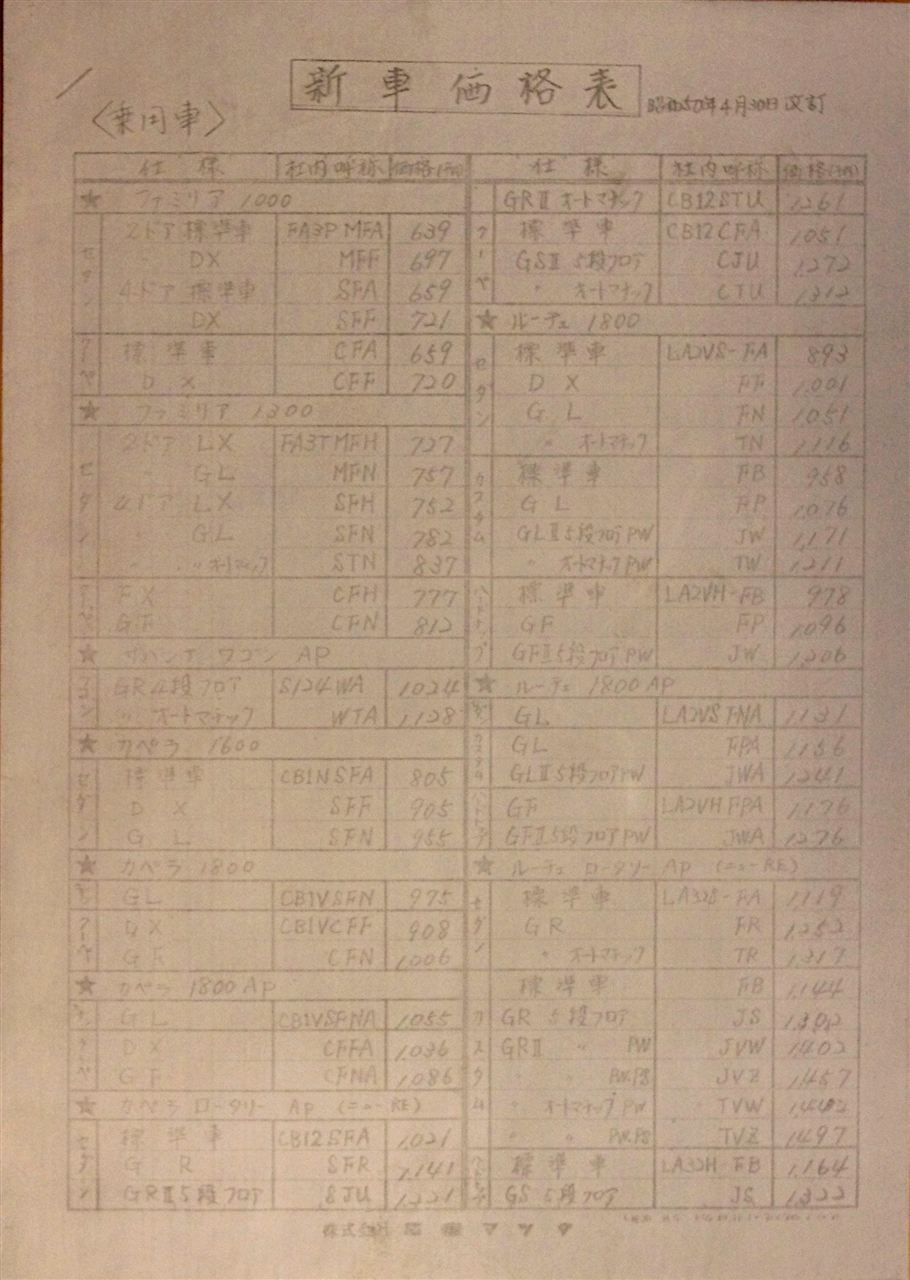 新車価格表
昭和50年4月30日改訂
〈乗用車〉
仕様 社内呼称 価格(千円)
★ ファミリア 1000
セダン
2ドア 標準車 FA3PMFA 639
〃 DX MFF 697
4ドア 標準車 SFA 659
DX SFF 721
クーペ
標準車 CFA 659
DX CFF 720
★ ファミリア 1300
セダン
2ドア LX FA3TMFH 727
〃 GL MFN 757
4ドア LX SFH 752
〃 GL SFN 782
〃 〃 オートマチック STN 837
クーペ
FX CFH 777
GF CFN 812
★ サバンナ ワゴン AP
ワゴン
GR4段フロア S124WA 1024
〃 オートマチック WTA 1,128
★ カペラ 1600
セダン
標準車 CB1NSFA 805
DX SFF 905
GL SFN 955
★ カペラ 1800
セダン
GL CB1VSFN 975
クーペ
DX CB1VCFF 908
GF CFN 1,006
★ カペラ 1800 AP
セダン
GL CB1VSFNA 1,055
クーペ
DX CFFA 1,036
GF CFNA 1,086
★ カペラ ロータリー AP (ニューRE)
セダン
標準車 CB12SFA 1,021
GR SFR 1,141
GRⅡ5段フロア SJU 1,221
仕様 社内呼称 価格(千円)
GRⅡ オートマチック CB12STU 1,261
クーペ
標準車 CB12CFA 1,051
GSⅡ 5段フロア CJU 1,272
〃 オートマチック CTU 1,312
★ ルーチェ 1800
セダン
標準車 LA2VS-FA 893
DX FF 1,001
GL FN 1,051
〃 オートマチック TN 1,116
カスタム
標準車 FB 958
GL FP 1,076
GLⅡ5段フロア PW JW 1,171
〃 オートマチック PW TW 1,211
ハードトップ
標準車 LA2VH-FB 978
GF FP 1,096
GFⅡ5段フロア PW JW 1,206
★ ルーチェ 1800 AP
セダン
GL LA2VSFNA 1,131
カスタム
GL FPA 1,156
GLⅡ5段フロア PW JWA 1,241
GF LA2VHFPA 1,176
GFⅡ5段フロア PW JWA 1,276
★ ルーチェ ロータリー AP (ニューRE)
セダン
標準車 LA32S-FA 1,119
GR FR 1,252
〃 オートマチック TR 1,317
カスタム
標準車 FB 1,144
GR 5段フロア JS 1,302
GRⅡ 〃 PW JVW 1,402
〃 〃 PW.PS JVZ 1,457
〃 オートマチック PW TVW 1,442
〃 〃 PW.PS TVZ 1,497
標準車 LA32H-FB 1,164
GS 5段フロア JS 1,322
株式会社 マツダ